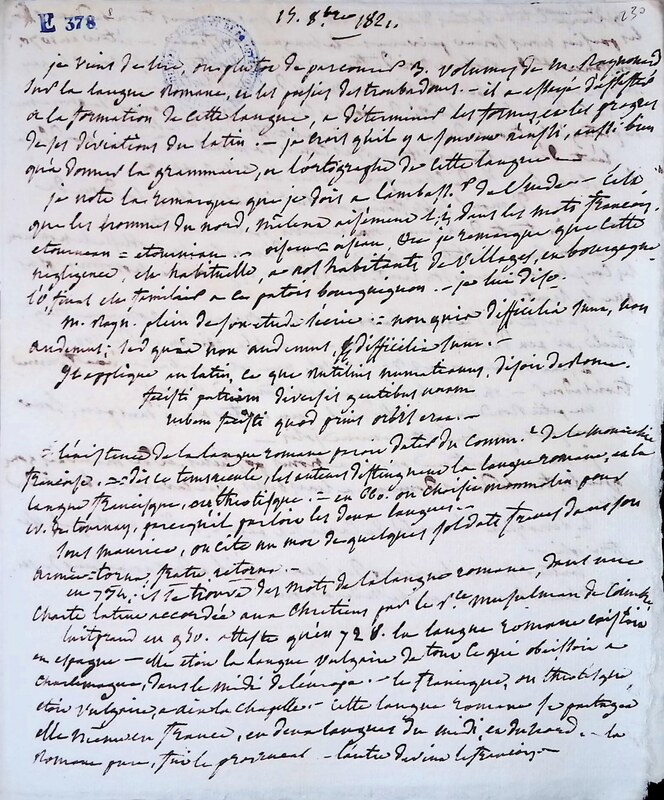 E 378
15. 8bre 1821.
230
je viens de lire, ou plutôt de parcourir 3. volumes de M. Raynouard
sur la langue romane, et les poésies des troubadours. — il a essayé
de la formation de cette langue, a déterminer les formes, et les progrès
de ses déviations du latin. — je crois qu'il y a souvent réussi, aussi bien
qu'a donner la grammaire, et l'ortographe de cette langue —
je note la remarque que je dois a l'ambass.r de Suède —
que les hommes du nord, mêlent aisément l'i dans les mots françois.
etourneau = etourniau. — oiseau oisiau. Or je remarque que cette
négligence, est habituelle, a nos habitants de villages, en bourgogne
l'o final est familier a ce patois bourguignon. —
M. Rayn. plein de son etude s'écrie := non quia difficilia sunt, non
audemus; sed quia non audemus, difficilia sunt. —
Il applique au latin, ce que Rutilius numatianus, disoit de Rome.
fecisti patriam diversis gentibus unam
urbem fecisti quod prius orbis erat. —
= l'existence de la langue romane peut dater du comm.t de la monarchie
françoise. — dès ce tems reculé, les auteurs distinguent la langue romane, et la
langue francisque, ou théotisque. = en 660. on choisit mommolin pour
ev. de tournay, parcequ'il parloit les deux langues. —
sous maurice, on cite un mot de quelques soldats francs dans son
armée = torna, fratre, retorna. —
en 734. il se trouve des mots de la langue romane, dans une
charte latine accordée aux chrétiens par le musulman de Coimbre
luitprand en 950. atteste qu'en 728. la langue romane existoit
en espagne — elle etoit la langue vulgaire de tout ce qui obéissoit a
charlemagne, dans le midi de l'europe. — le francique, ou théotisque,
etoit vulgaire, a aix la chapelle. — cette langue romane se partagea
elle même en france, en deux langues du midi, et du nord. — la
romane pure, fut le provençal — l'autre devint le françois —